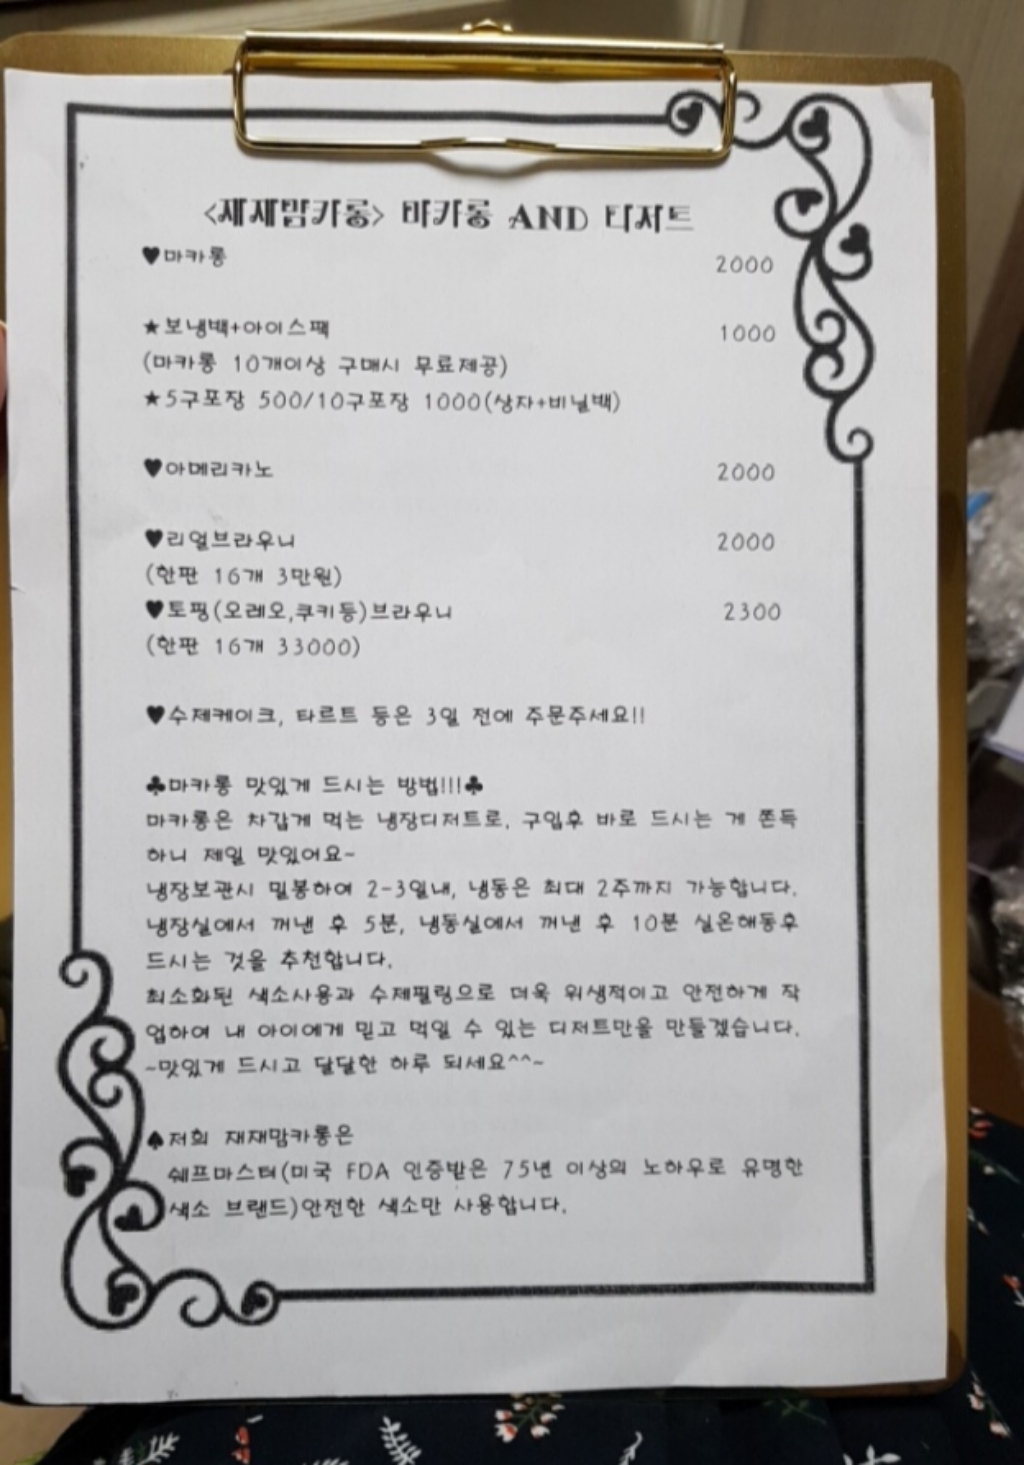 <재재맘카롱> 마카롱 AND 디저트
♥마카롱 2000
★보냉백+아이스팩 1000
(마카롱 10개이상 구매시 무료제공)
★5구포장 500/10구포장 1000(상자+비닐백)
♥아메리카노 2000
♥리얼브라우니 2000
(한판 16개 3만원)
♥토핑(오레오,쿠키등)브라우니 2300
(한판 16개 33000)
♥수제케이크, 타르트 등은 3일 전에 주문주세요!!
♣마카롱 맛있게 드시는 방법!!!♣
마카롱은 차갑게 먹는 냉장디저트로, 구입후 바로 드시는 게 쫀득
하니 제일 맛있어요~
냉장보관시 밀봉하여 2-3일내, 냉동은 최대 2주까지 가능합니다.
냉장실에서 꺼낸 후 5분, 냉동실에서 꺼낸 후 10분 실온해동후
드시는 것을 추천합니다.
최소화된 색소사용과 수제필링으로 더욱 위생적이고 안전하게 작
업하여 내 아이에게 믿고 먹일 수 있는 디저트만을 만들겠습니다.
~맛있게 드시고 달달한 하루 되세요^^~
♠저희 재재맘카롱은
쉐프마스터(미국 FDA 인증받은 75년 이상의 노하우로 유명한
색소 브랜드)안전한 색소만 사용합니다.